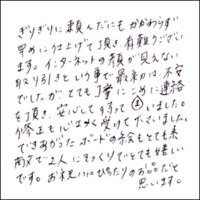 ぎりぎりに頼んだにもかかわらず
早めに仕上げて頂き、有難うござい
ます。インターネットの顔が見えない
取り引きという事で最初は不安
でしたが とても丁寧に こまめに連絡
を頂き、安心して待って いました。
修正も心よく受けて下さいました。
できあがったボードの絵もとても素
敵で2人にそっくりでとても嬉しい
です。お祝いにぴったりのお品だと
思います。